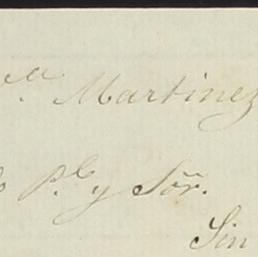 Martinez
P.e y Sõr.
Sin